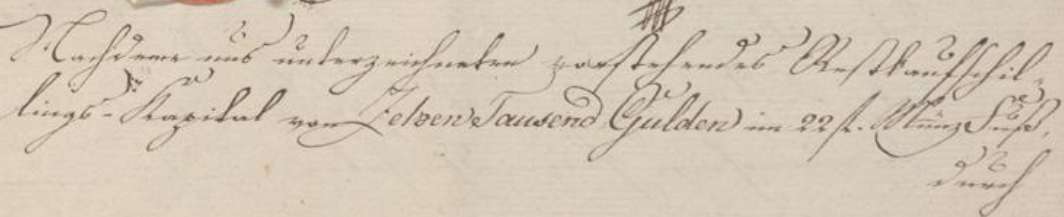 Nachdeme uns unterzeichneten vorstehendes Restkaufschil-
lings-Kapital von Zehen Tausend Gulden im 22 f. Münz Fuß,
durch